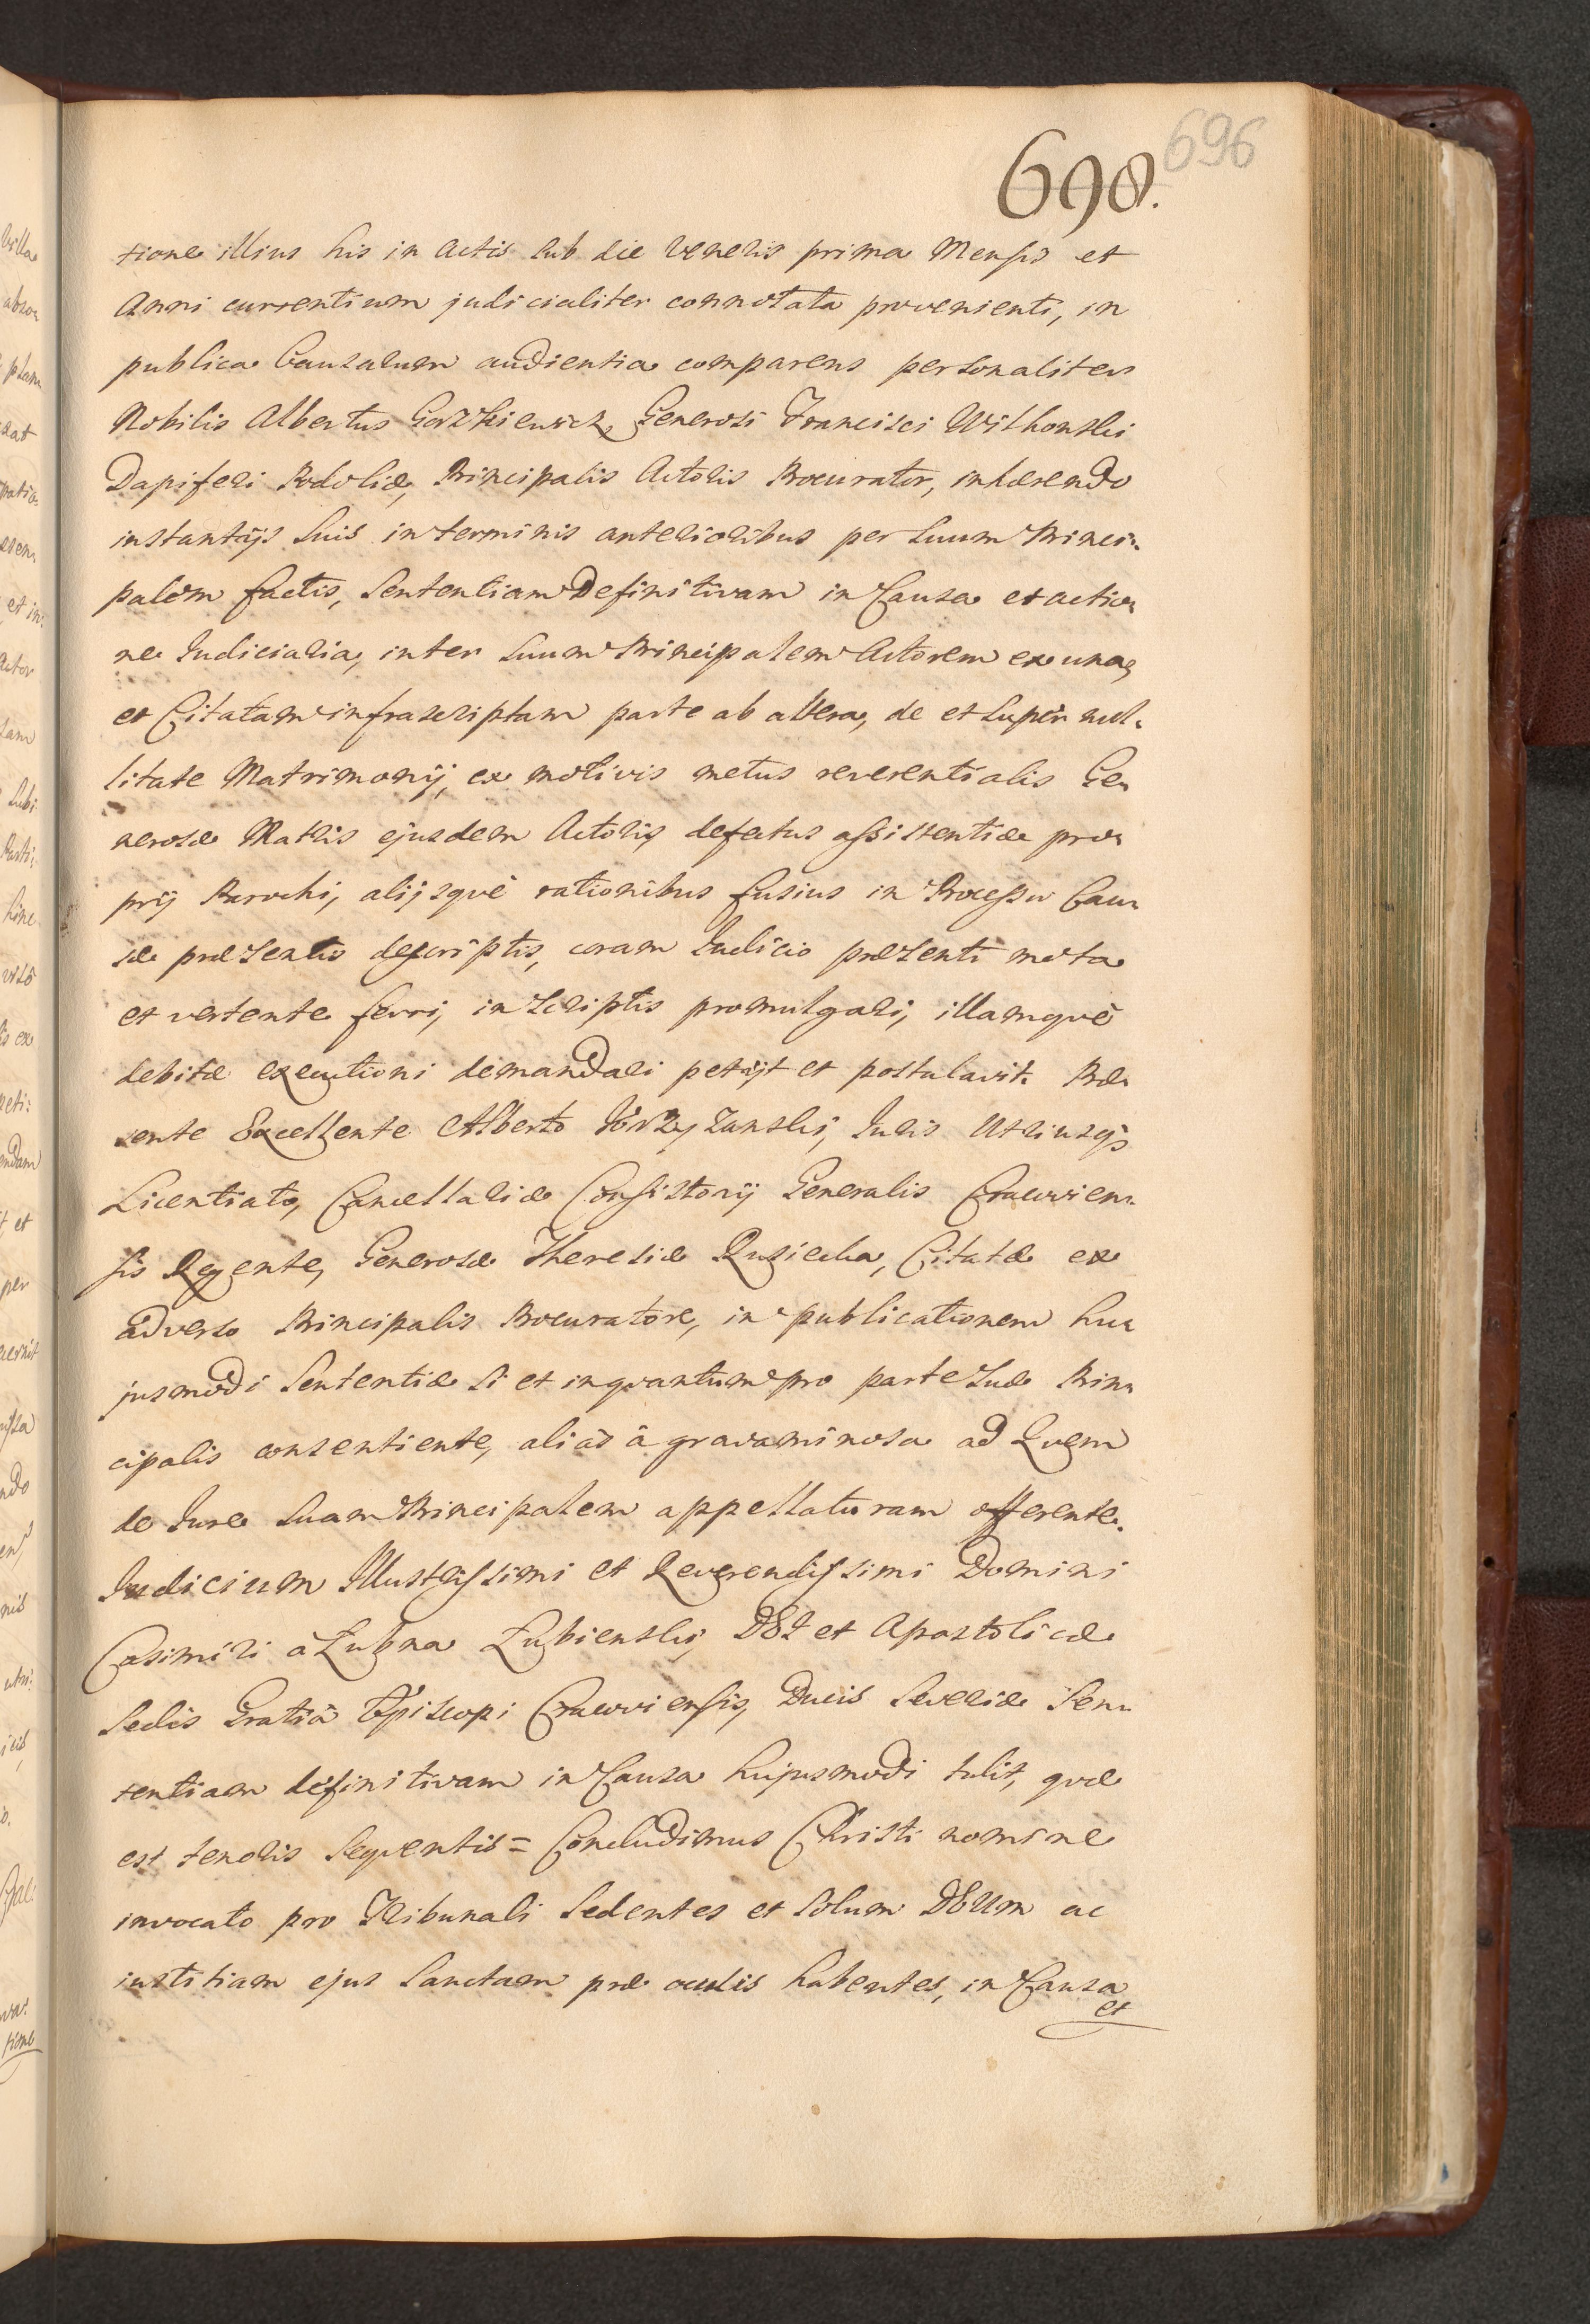 698. 696
tione illius his in Actis sub die Veneris prima Mensis et
Anni currentium judicialiter connotata provenienti, in
publica Causarum audientia comparens personaliter
Nobilis Albertus Gorzkiewicz, Generosi Francisci Witkowski
Dapiferi Podoliæ, Principalis Actoris Procurator, inhærendo
instantijs suis in terminis anterioribus per suum Princi:
palem factis, Sententiam Definitivam in Causa et actio:
ne Judiciaria, inter suum Principalem Actorem ex una,
et Citatam infrascriptam parte ab altera, de et super nul:
litate Matrimonij, ex motivis metus reverentialis Ge:
nerosæ Matris ejusdem Actoris, defectus assistentiæ pro:
prij Parochi, alijsquè rationibus fusius in Processu Cau:
sæ præsentis descriptis, coram Judicio præsenti mota
et vertente ferri, in scriptis promulgari, illamquè
debitæ executioni demandari petijt et postulavit. Præ:
sente Excellente Alberto Jurzyzanski, Juris Utriusqs
Licentiato, Cancellariæ Consistorij Generalis Cracovien:
sis Regente, Generosæ Theresiæ Rusiecka, Citatæ ex
adverso Principalis Procuratore, in publicationem hu:
jusmodi Sententiæ si et inqvantum pro parte suæ Prin:
cipalis consentiente, aliàs à gravaminosa ad Quem
de Jure suam Principalem appellaturam offerente.
Judicium Illustrissimi et Reverendissimi Domini
Casimiri à Łubna Łubienski, DEI et Apostolicæ
Sedis Gratiâ Episcopi Cracoviensis, Ducis Severiæ Sen:
tentiam definitivam in Causa hujusmodi tulit, qvæ
est tenoris seqventis = Concludimus Christi nomine
invocato pro Tribunali sedentes et solum DEUm ac
iustitiam ejus Sanctam præ oculis habentes, in Causa
et